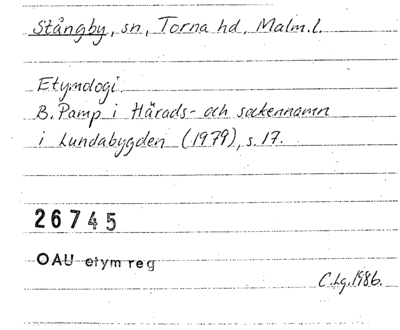 Stångby, sn, Torna hd, Malm.l.
Etymologi.
B. Pamp i Härads- och sockennamn
i Lundabygden (1979), s. 17.
26745
OAU etym reg
C.Lg. 1986.